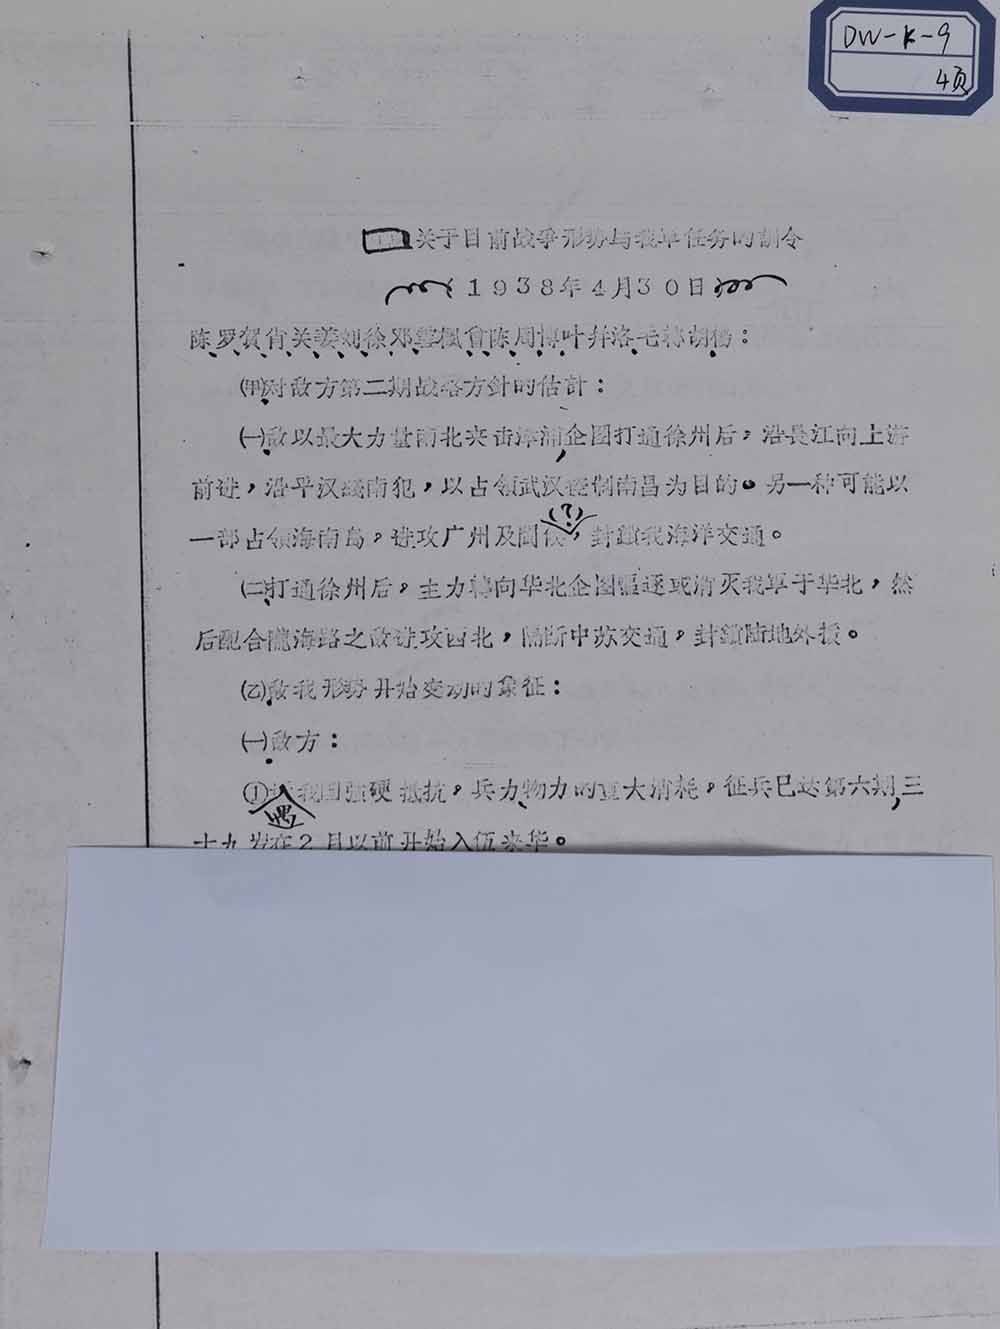 DW-K-9
4页
关于目前战争形势与我军任务的训令
1938年4月30日
陈罗贺肖关姜刘徐邓雪枫曾陈周博叶并洛毛胡杨：
㈠甲对敌方第二期战略方針的估計：
㈠敌以最大力量南北夹击津浦，企图打通徐州后，沿長江向上游
前进，沿平汉綫南犯，以占领武汉控制南昌为目的。另一种可能以
一部占领海南岛，进攻广州及閩侯(?)，封鎖我海洋交通。
㈡打通徐州后，主力轉向华北企图驅逐或消灭我軍于华北，然
后配合隴海路之敌进攻西北，隔断中苏交通，封鎖陆地外援。
㈠乙敌我形势开始变动的象征：
㈠敌方：
①遇我国强硬抵抗，兵力、物力的重大消耗，征兵已达第六期，三
十九岁在2月以前开始入伍来华。